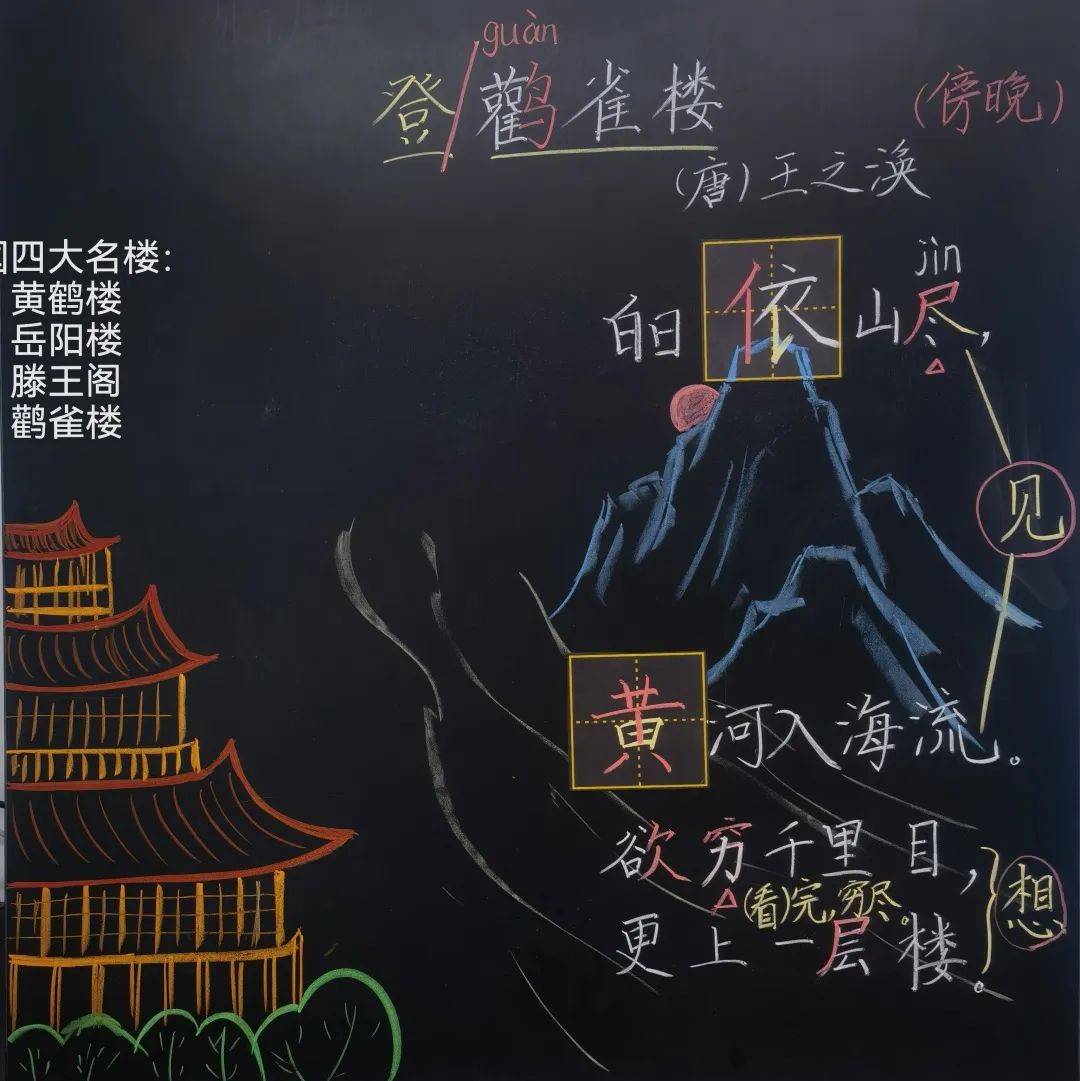 guàn
登/鹳雀楼
(傍晚)
(唐)王之涣
四大名楼：
黄鹤楼
岳阳楼
滕王阁
鹳雀楼
jìn
白日依山尽，
见
黄河入海流。
欲穷千里目，
(看)完，穷尽。
想
更上一层楼。